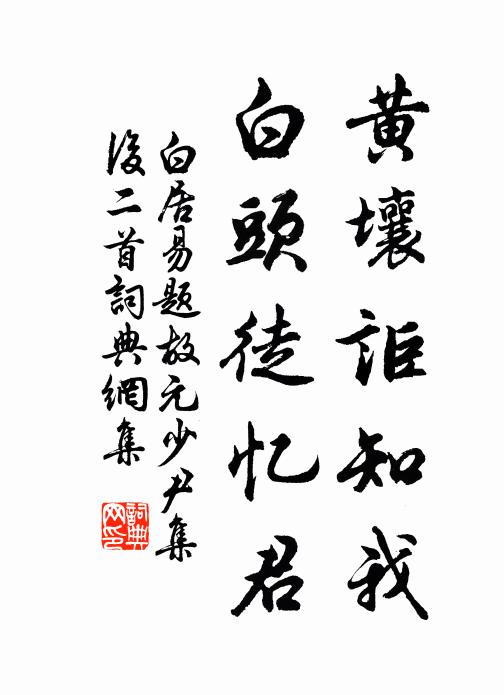 黄壤詎知我
白頭徒忆君
白居易題故元少尹集
後二首詞典網集
詞典网印